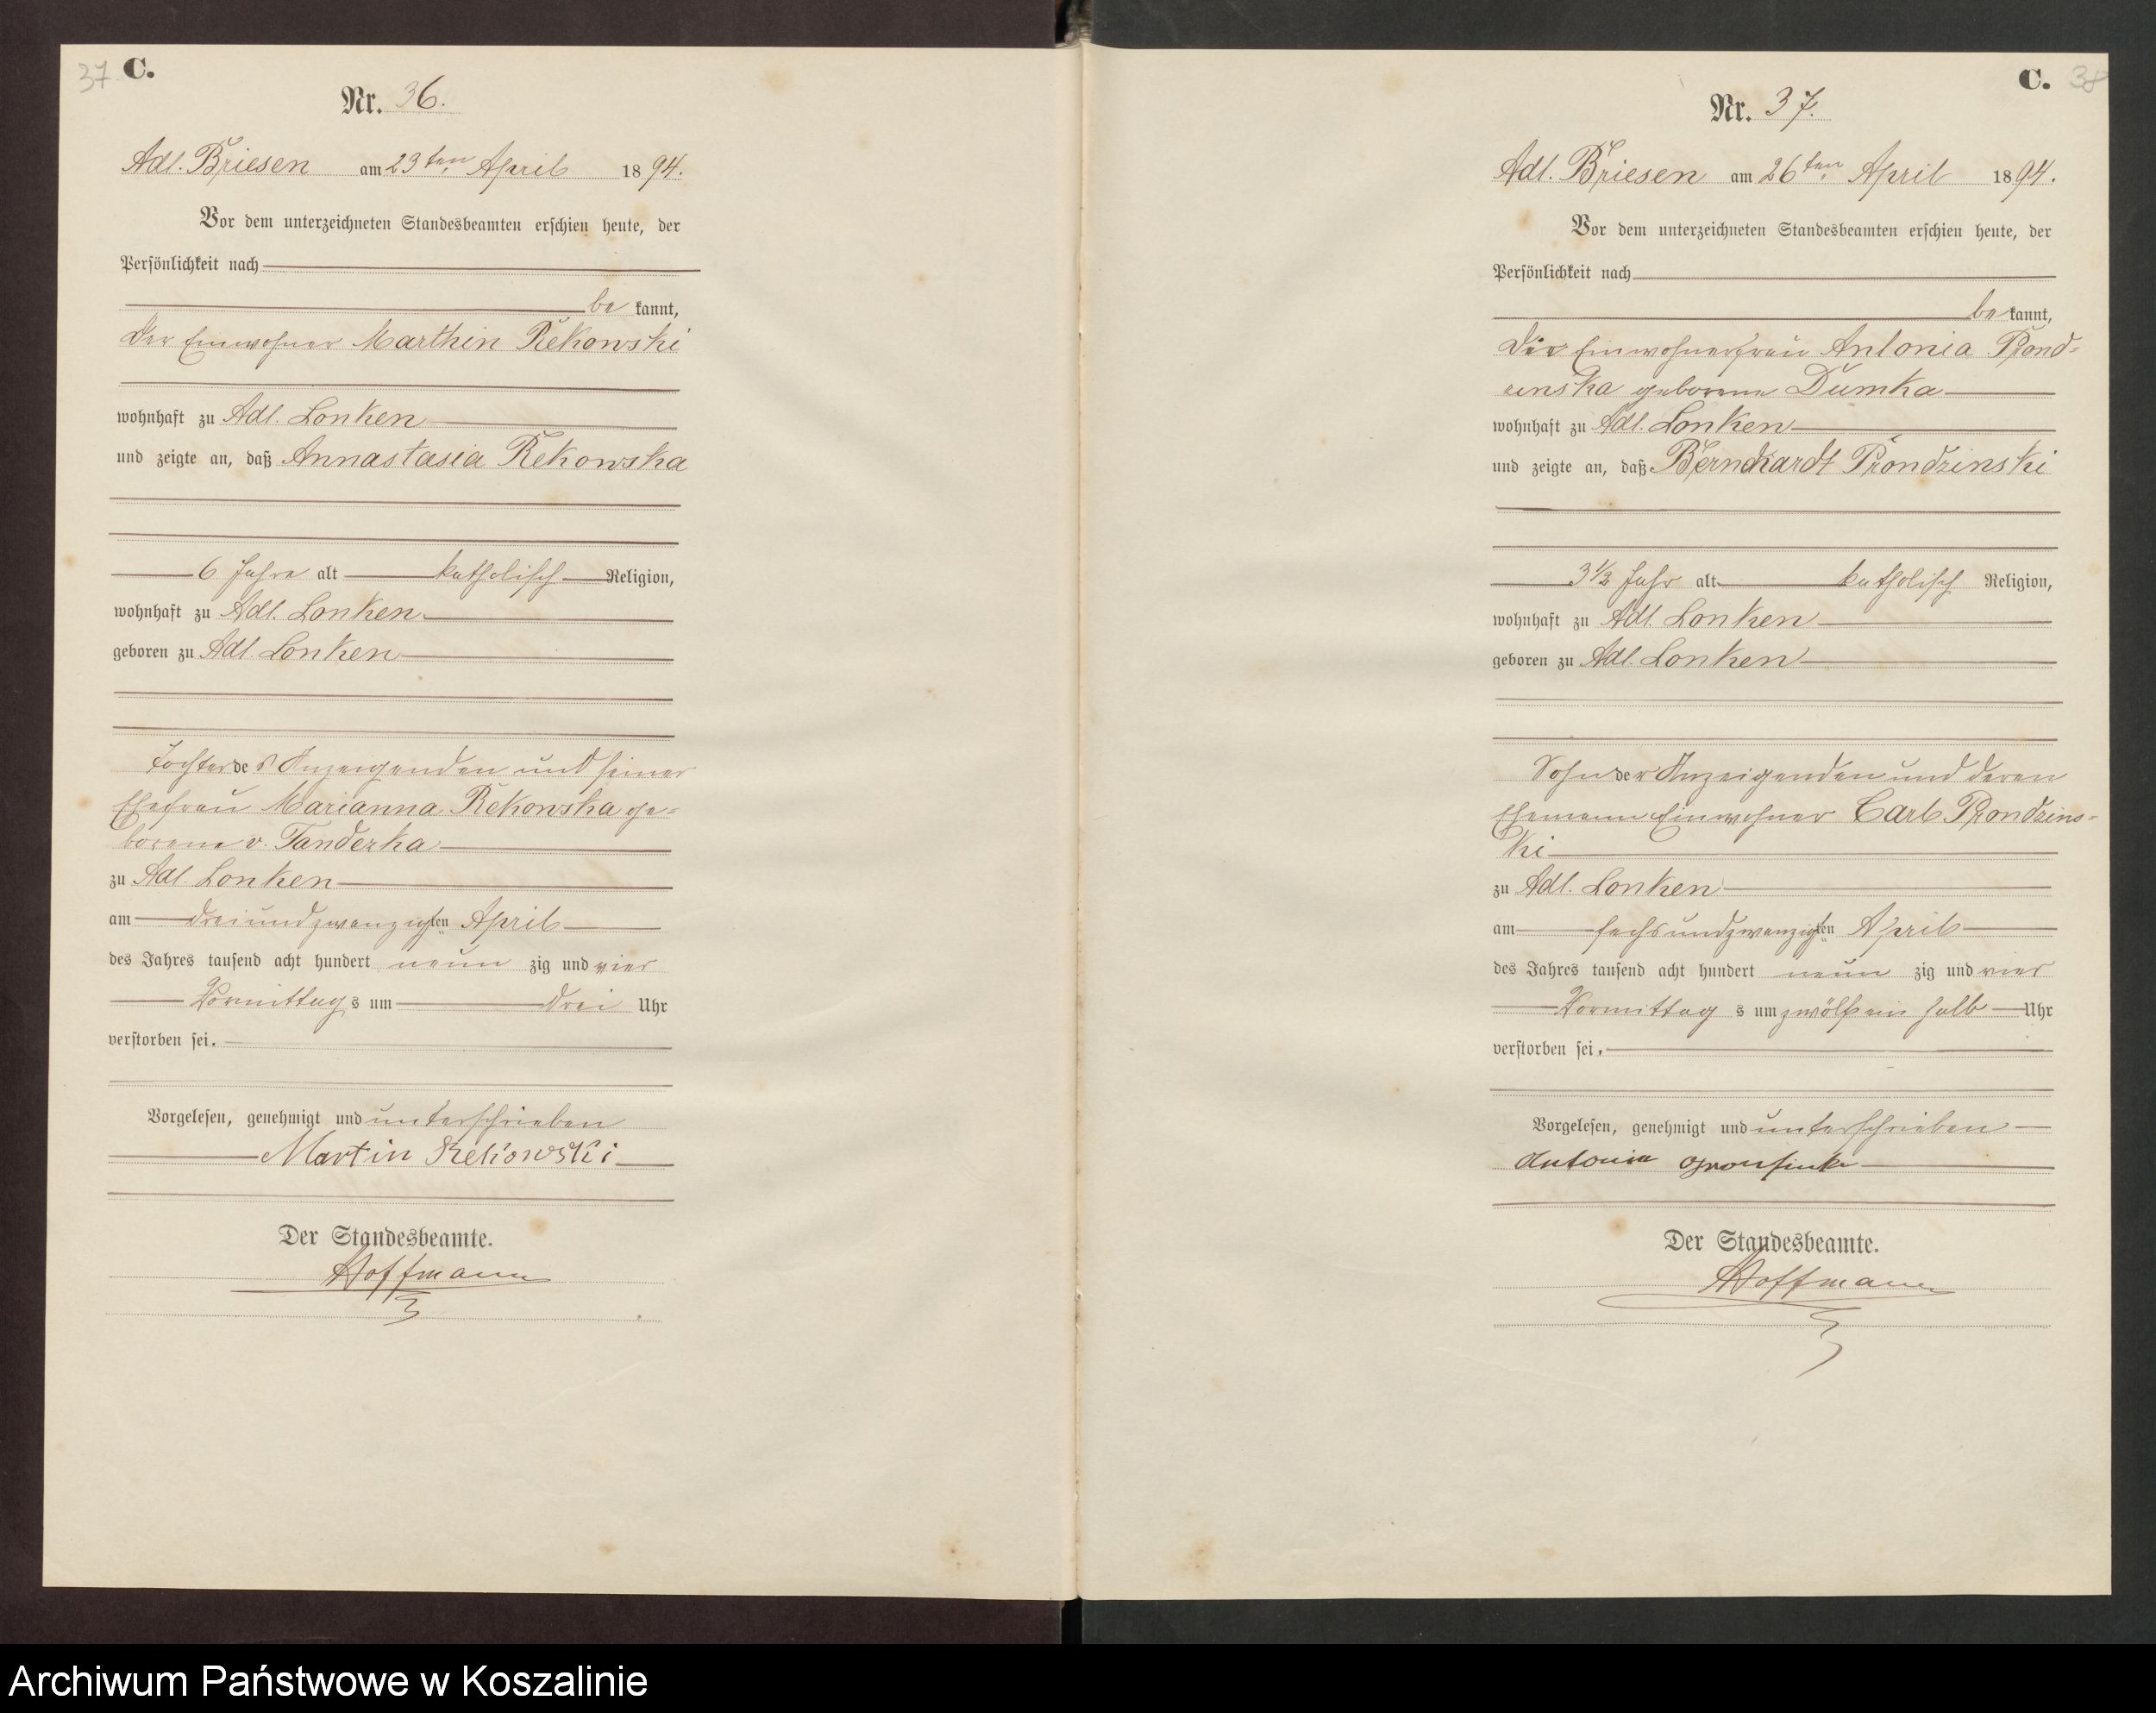 37 C.
Nr. 36.
Adl. Briesen am 23ten April 1894.
Vor dem unterzeichneten Standesbeamten erschien heute, der
Persönlichkeit nach
be kannt,
der Einwohner Marthin Rekowski
wohnhaft zu Adl. Lonken
und zeigte an, daß Annastasia Rekowska
6 Jahre alt katholisch Religion,
wohnhaft zu Adl. Lonken
geboren zu Adl. Lonken
Tochter des Anzeigenden und seiner
Ehefrau Marianna Rekowska ge=
borene v.
zu Adl. Lonken
am dreiundzwanzigsten April
des Jahres tausend acht hundert neun zig und vier
Vormittags um drei Uhr
verstorben sei.
Vorgelesen, genehmigt und unterschrieben
Martin Rekowski
Der Standesbeamte.
Hoffmann
C. 38
Nr. 37.
Adl. Briesen am 26ten April 1894.
Vor dem unterzeichneten Standesbeamten erschien heute, der
Persönlichkeit nach
be kannt,
die Einwohnerfrau Antonia Prond=
zinska geborene Dumka
wohnhaft zu Adl. Lonken
und zeigte an, daß Bernhardt Prondzinski
3 1/2 Jahr alt katholisch Religion,
wohnhaft zu Adl. Lonken
geboren zu Adl. Lonken
Sohn der Anzeigenden und deren
Ehemann Einwohner Carl Prondzins=
ki
zu Adl. Lonken
am sechsundzwanzigsten April
des Jahres tausend acht hundert neun zig und vier
Vormittags um zwölf ein halb Uhr
verstorben sei.
Vorgelesen, genehmigt und unterschrieben
Antonia
Der Standesbeamte.
Hoffmann
Archiwum Państwowe w Koszalinie